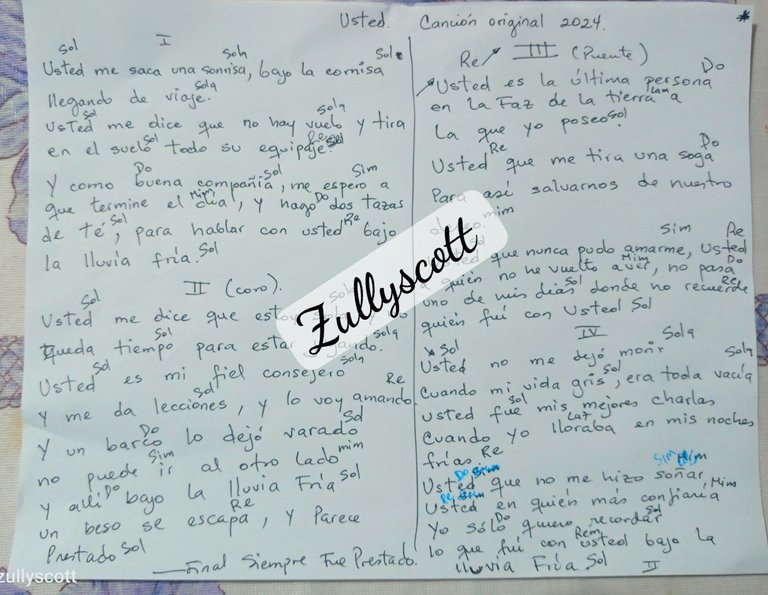 Usted. Canción original 2024.
I
Sol Sol4 Sol
Usted me saca una sonrisa, bajo la cornisa
Sol4
llegando de viaje.
Sol Sol4
Usted me dice que no hay vuelo y tira
Sol Re
en el suelo todo su equipaje.
Do Sol Sim
Y como buena compañía, me espero a
Mim Do
que termine el día, y hago dos tazas
Sol Re
de té, para hablar con usted bajo
la lluvia fría. Sol
II (coro).
Sol
Usted me dice que
Sol Sol4
queda tiempo para
Sol Sol4
Usted es mi fiel consejero
Sol Re
Y me da lecciones, y lo voy amando.
Do Sol
Y un barco lo dejó varado
Sim mim
no puede ir al otro lado
Do Sol
y allí bajo la lluvia Fría
Re
un beso se escapa, y Parece
Prestado Sol
Final Siempre Fue Prestado.
Re III (Puente)
Do
Usted es la última persona
Lam
en la Faz de la tierra a
La que yo poseo Sol
Re Do
Usted que me tira una soga
Para así salvarnos de nuestro
mim
Sim Re
que nunca pudo amarme, Usted
Mim Do
a quién no he vuelto a ver, no pasa
Sol Re
uno de mis días donde no recuerde
quién fuí con Usted Sol
IV
Sol Sol4
Usted no me dejó morir
Sol Sol4
Cuando mi vida gris, era toda vacía
Sol
usted fue mis mejores charlas
La7
Cuando yo lloraba en mis noches
frías. Re
Do Sim
Usted que no me hizo soñar
Re Mim
Usted en quién más confiaría
Do Sol
Yo sólo quiero recordar
Rem
lo que fuí con usted bajo la
lluvia Fría Sol II
Zullyscott
zullyscott